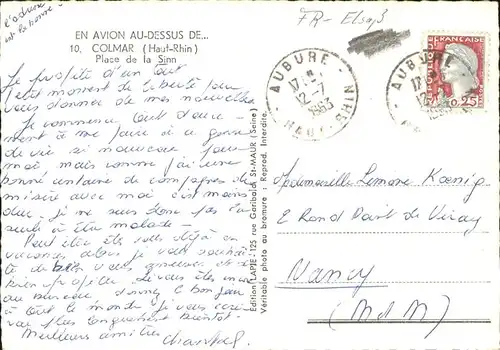 l'adresse
est la bonne!
EN AVION AU-DESSUS DE...
10. COLMAR (Haut-Rhin)
Place de la Sinn
Je profite d'un tout
petit moment de liberté pour
vous donner de mes nouvelles
Je commence tout douce-
ment à me faire à ce genre
de vie si nouveau pour
moi mais comme j'ai une
bonne centaine de compagnes de
misère avec moi c'est moins
dur. Je ne suis donc pas la
seule à être malade.
Peut être êtes vous déjà en
vacances alors je vous souhai-
te de bien vous
bien profiter
au bureau donnez le bonjour
à tout le monde je vous
plus longuement bientôt.
Meilleures amitiés
Chantal
Edition LAPIE, 125 rue Garibaldi St-MAUR (Seine)
Véritable photo au bromure - Reprod. Interdite.
FR - Elsaß
AUBURE
17 H
12-7
1963
HAUT-RHIN
AUBURE
0,25
Mademoiselle Simone Koenig
2 Rond Point Le Viray
Nancy
(M et M)